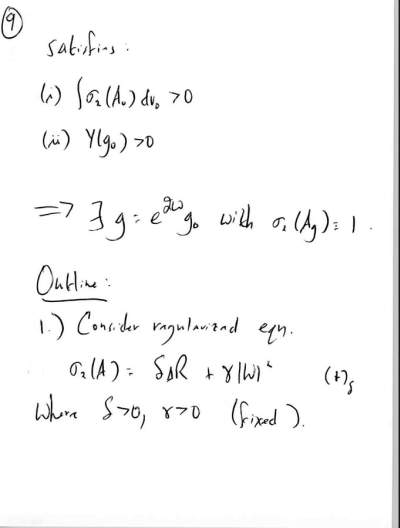 9
Satisfies:
(i) ∫σ₂(A₀) dv₀ > 0
(ii) Y(g₀) > 0
⟹ ∃ g = e^{2w} g₀ with σ₂(A_g) = 1.
Outline:
1.) Consider regularized eqn.
σ₂(A) = δΔR + γ|W|² (†)_δ
where δ>0, γ>0 (fixed).